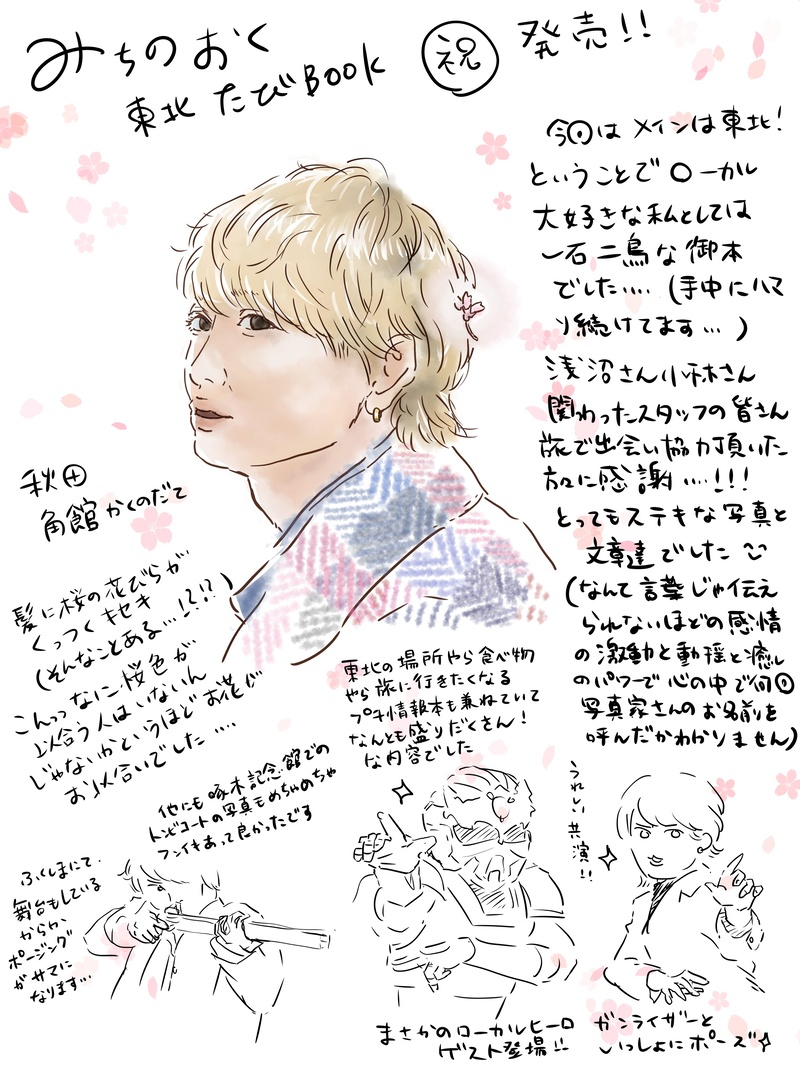 みちのおく
東北 たびBook
祝
発売!!
今回はメインは東北!
ということでローカル
大好きな私としては
一石二鳥な御本
でした.... (手中にハマ
り続けてます...)
浅沼さん小林さん
関わったスタッフの皆さん
旅で出会い協力頂いた
方々に感謝....!!!
とってもステキな写真と
文章達でした
(なんて言葉じゃ伝え
られないほどの感情
の激動と動揺と癒し
のパワーで心の中で何回
写真家さんのお名前を
呼んだかわかりません)
秋田
角館 かくのだて
髪に桜の花びらが
くっつくキセキ
(そんなことある...!?!?)
こんっなに桜色が
似合う人はいないん
じゃないかというほどお花が
お似合いでした....
東北の場所やら食べ物
やら旅に行きたくなる
プチ情報本も兼ねていて
なんとも盛りだくさん!
な内容でした
他にも啄木記念館での
トンビコートの写真もめちゃめちゃ
フンイキあって良かったです
ふくしまにて.
舞台もしている
からか
ポージング
がサマに
なります...
まさかのローカルヒーロ
ゲスト登場!!
うれしい共演!!
ガンライザーと
いっしょにポーズ